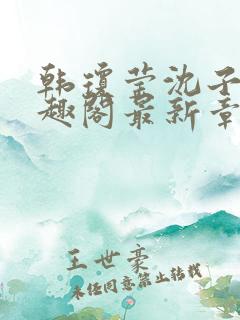 韩琼莹沈子
趣阁最新章
王世豪
未经同意禁止转载